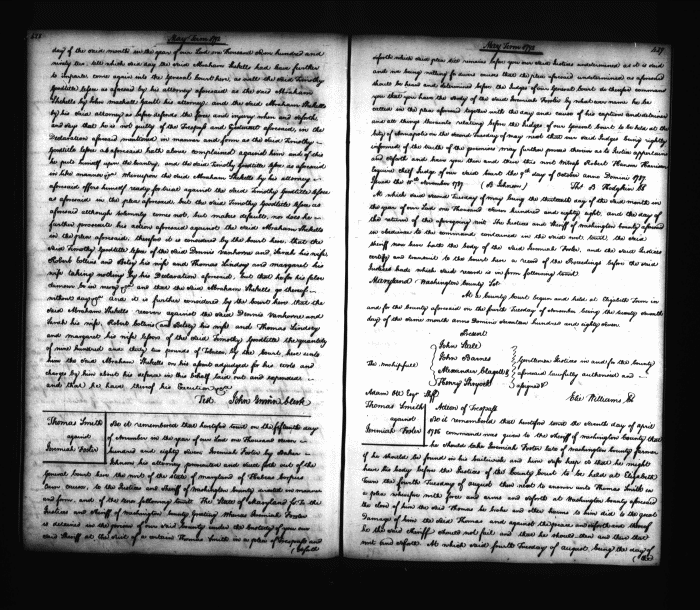 May Term 1792
day of the said month in the year of our Lord one Thousand seven hundred and
ninety two, till which said day the said Abraham Shekells had leave further
to imparle come again into the General Court here, as well the said Timothy
Goodtitle lessee as aforesaid by his attorney aforesaid as the said Abraham
Shekells by John his attorney, and the said Abraham Shekells
by his said attorney as before defends the force and injury when and soforth
and says that he is not guilty of the Trespass and Ejectment aforesaid, in the
Declaration aforesaid mentioned in manner and form as the said Timothy
Goodtitle lessee as aforesaid hath above complained against him and of this
he puts himself upon the Country, and the said Timothy Goodtitle lessee as aforesaid
in like manner &c Whereupon the said Abraham Shekells by his attorney
aforesaid offers himself ready for trial against the said Timothy Goodtitle lessee
as aforesaid in the plea aforesaid, but the said Timothy Goodtitle lessee as
aforesaid although solemnly comes not, but makes default, nor does he
further prosecute his action aforesaid against the said Abraham Shekells
in the plea aforesaid, therefore it is considered by the Court here, that the
said Timothy Goodtitle lessee of the said Dennis Vanhorne and Sarah his wife
Robert Collins and Betsy his wife and Thomas Lindsey and Margaret his
wife taking nothing by his Declaration aforesaid, but that he for his false
clamour be in mercy &c and that the said Abraham Shekells go thereof
without day &c and it is further considered by the Court here that the
said Abraham Shekells recover against the said Dennis Vanhorne and
Sarah his wife, Robert Collins and Betsy his wife and Thomas Lindsey
and Margaret his wife lessors of the said Timothy Goodtitle the quantity
of nine hundred and thirty six pounds of Tobacco by the Court here
him the said Abraham Shekells on his assent adjudged for his costs and
charges by him about his defence in this behalf laid out and expended
and that he have thereof his Execution &c
Test John Clerk
Thomas Smith
against
Jeremiah Foster
Be it remembered that heretofore to wit on the fifteenth day
of November in the year of our Lord one Thousand seven
hundred and eighty seven Jeremiah Foster by
Johnson his attorney prosecuted and sued forth out of the
General Court here the writ of the State of Maryland of Habeas Corpus
Cum causa, to the Justices and Sheriff of Washington County in manner
and form, and of the tenor following to wit The State of Maryland to the
Justices and Sheriff of Washington County Greeting Whereas Jeremiah Foster
is detained in the prison of our said County under the custody of you our
said Sheriff at the suit of a certain Thomas Smith in a plea of trespass and
(soforth
May Term 1792
soforth which said plea still remains before you our said Justices undetermined as it is said
and we being willing for some causes that the plea aforesaid undetermined as aforesaid
should be heard and determined before the Judges of our General Court do therefore command
you that you have the body of the said Jeremiah Foster by what ever name he be
called in the plea aforesaid together with the day and cause of his caption and detainer
and all things therewith relating before the Judges of our General Court to be held at the
City of Annapolis on the second Tuesday of May next that our said Judges being rightly
informed of the truth of the premises may further proceed therein as to Justice appertains
and soforth and have you then and there this writ Witness Robert Hanson Harrison
Esquire Chief Judge of our said Court the 9th day of October Anno Domini 1787
Issued the 15th November 1787 (B Johnson) Tho B Hodgkin Clk
At which said second Tuesday of May being the thirteenth day of the said month in
the year of our Lord one Thousand seven hundred and eighty eight, and the day of
the return of the aforegoing writ the Justices and Sheriff of Washington County aforesaid
in obedience to the command contained in the said writ to wit, the said
Sheriff now here hath the body of the said Jeremiah Foster, and the said Justices
certify and transmit to the Court here a record of the Proceedings before the said
Justices had which said record is in form following to wit
Maryland Washington County Sct
At a County Court begun and held at Elizabeth Town in
and for the County aforesaid on the fourth Tuesday of November being the twenty seventh
day of the same month Anno Domini Seventeen hundred and eighty seven
Present
The Worshipfull
John Stull
John Barnes
Alexander Clagett &
Henry Shryock
Gentlemen Justices in and for the County
aforesaid lawfully authorised and
assigned &c
Adam Ott Esqr Shff Elie Williams Clk
Thomas Smith
against
Jeremiah Foster
Action of Trespass
Be it remembered that heretofore to wit the seventh day of April
1786 command was given to the Sheriff of Washington County that
he should take Jeremiah Foster late of Washington County Farmer
if he should be found in his bailiwick and him safe keep so that he might
have his body before the Justices of the County Court to be held at Elizabeth
Town the fourth Tuesday of August then next to answer unto Thomas Smith in
a plea wherefore with force and arms and soforth at Washington County aforesaid
the of him the said Thomas he broke and other harms to him did to the great
damage of him the said Thomas and against the peace and soforth and thereof
he the said Sheriff should not fail and that he should have there and then that
writ and soforth. At which said fourth Tuesday of August, being the day of
(the